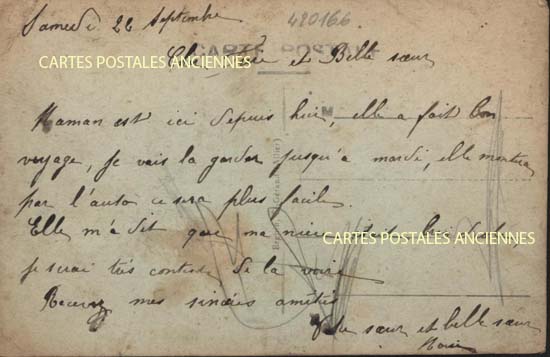 Samedi 26 Septembre
480166
CARTE POSTALE
CARTES POSTALES ANCIENNES
et Belle sœur
Maman est ici depuis hier, elle a fait bon
voyage, je vais la garder jusqu'à mardi, elle
par l'auto ce sera plus facile.
Elle m'a dit que ma
CARTES POSTALES ANCIENNES
je serai très contente de la voir
Recevez mes sincères amitiés
sœur et belle sœur